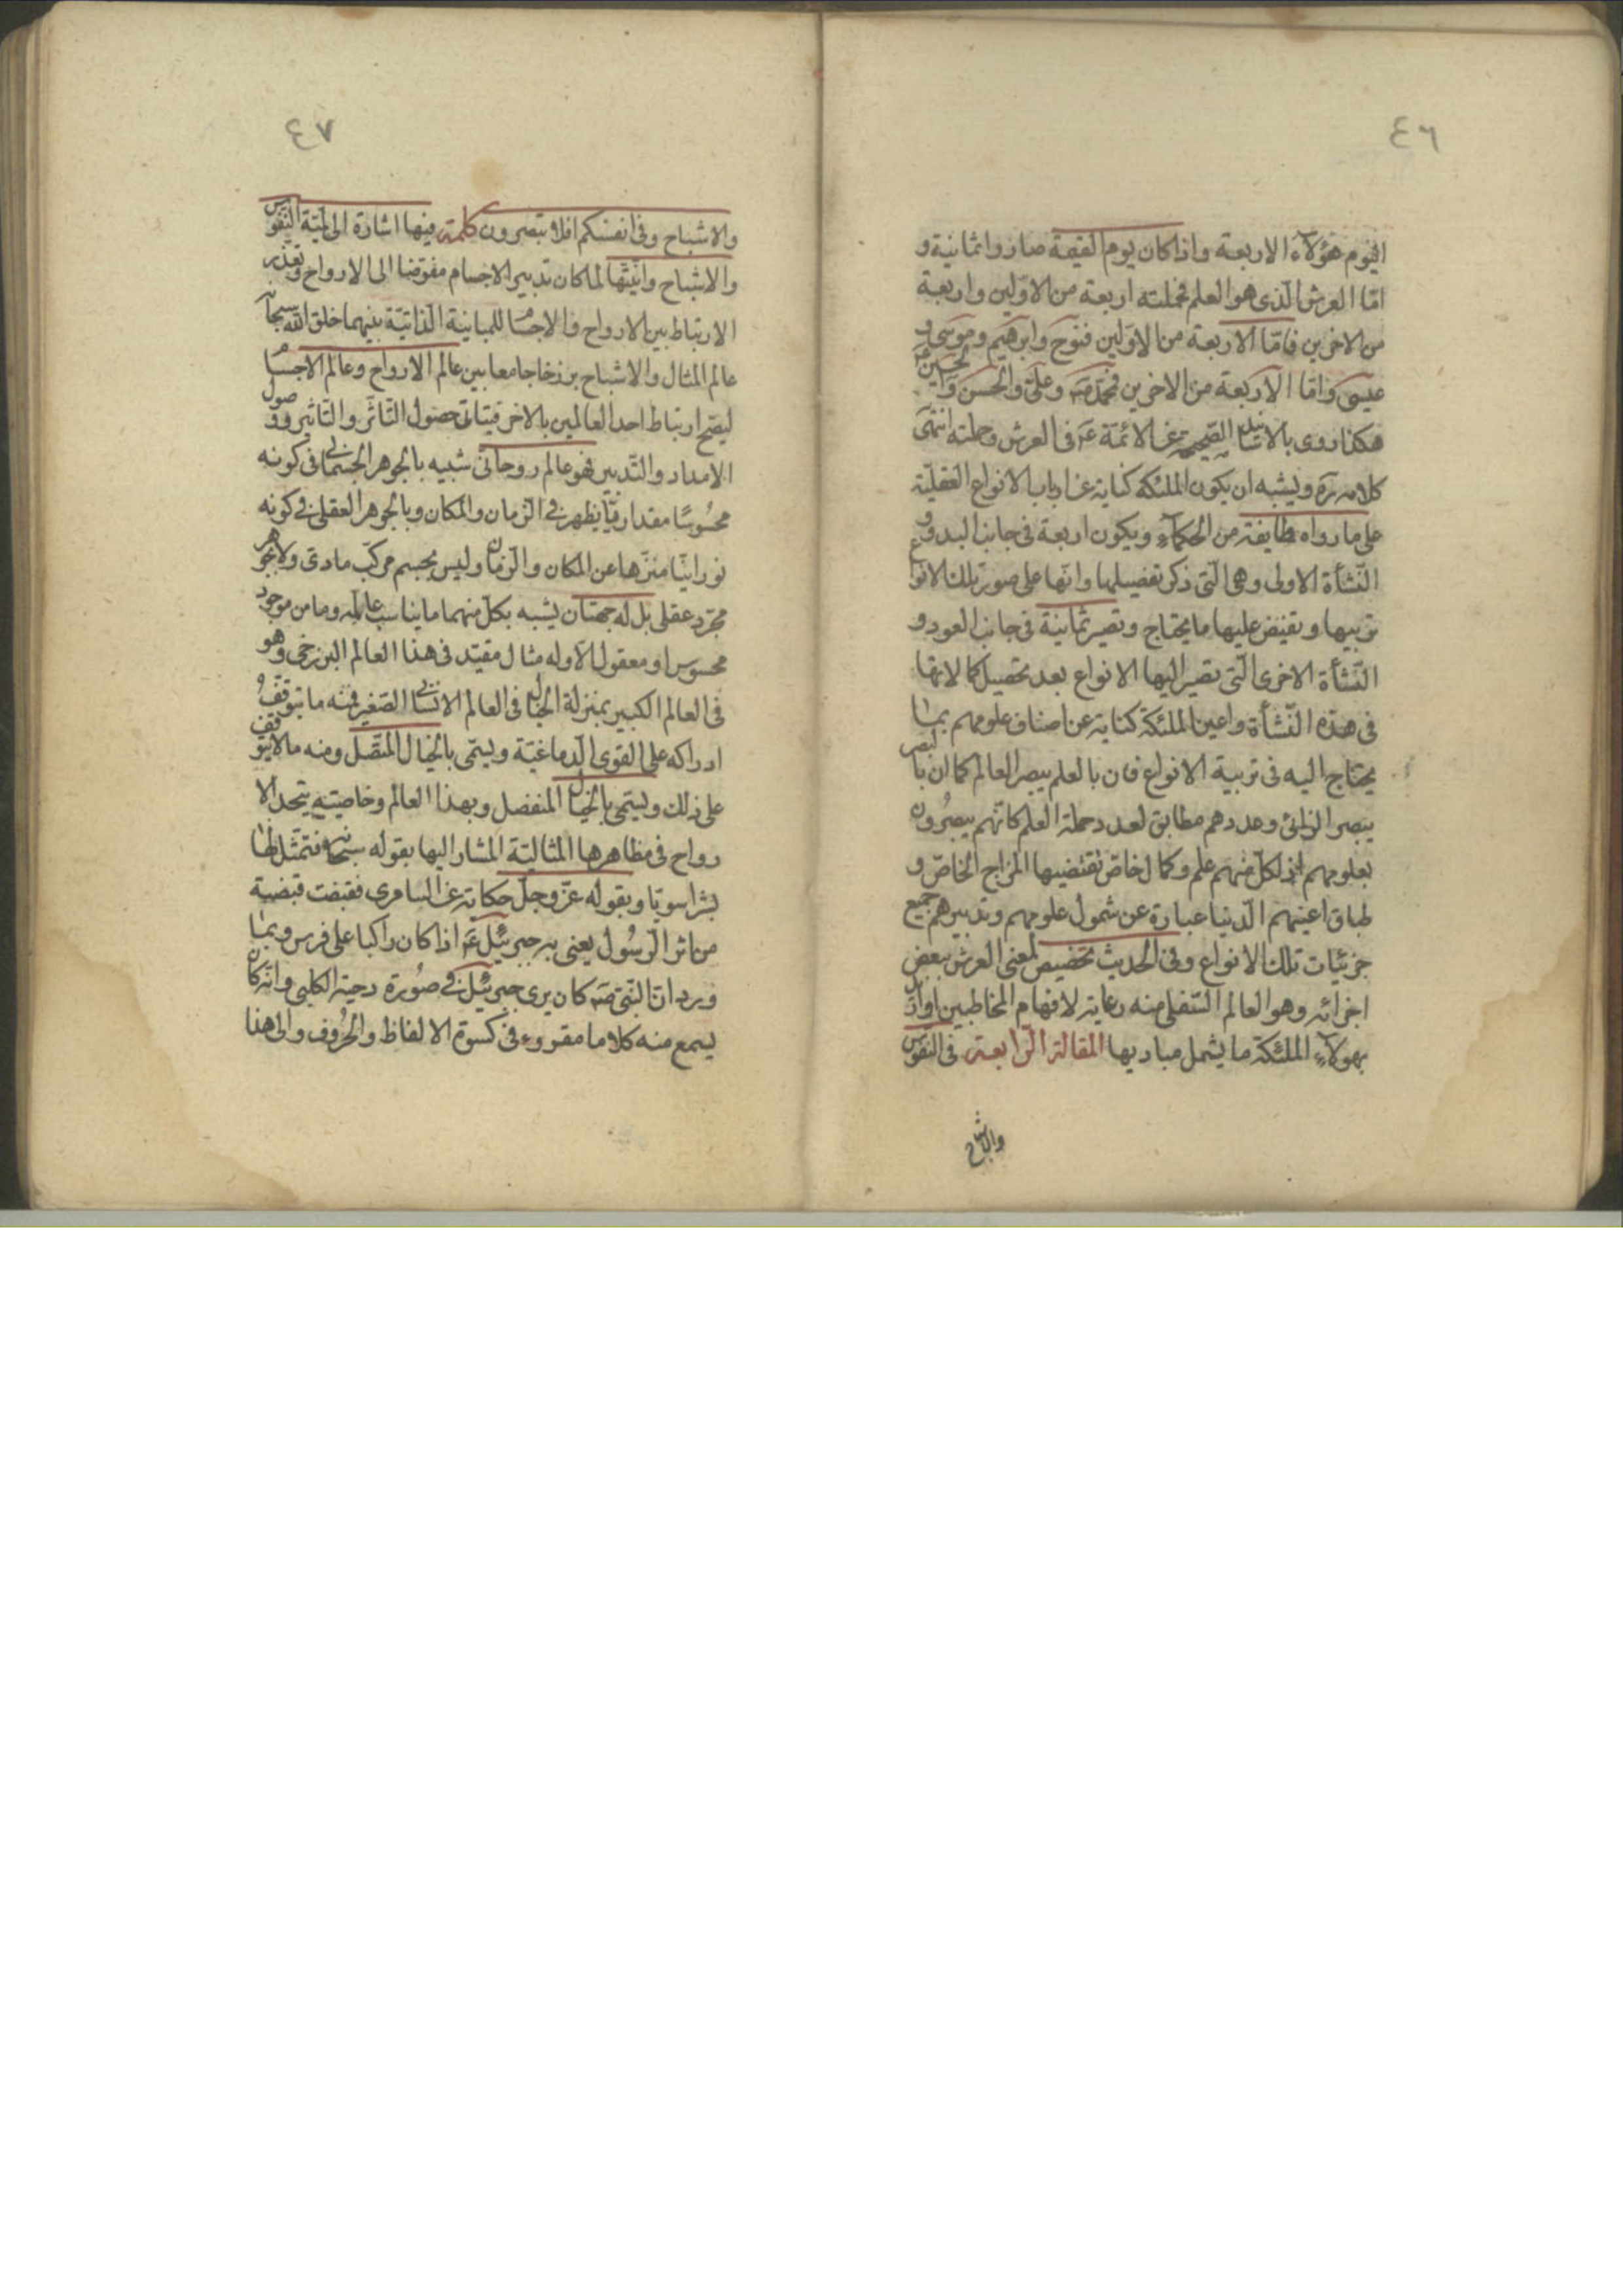 ٤٦
اليوم هؤلاء الاربعة واذا كان يوم القيمة صاروا ثمانية و
امّا العرش الّذى هو العلم فحملته اربعة من الاوّلين واربعة
من الاخرين فامّا الاربعة من الاوّلين فنوح وابرهيم وموسى و
عيسى وامّا الاربعة من الاخرين فمحمّد صه وعلىّ والحسن والحسين
هكذا روى بالاسانيد الصحيحة عن الائمّة عم فى العرش وحملته انتهى
كلامه ره ويشبه ان يكون الملئكة كناية عن ارباب الانواع العقليّة
على ما رواه طايفة من الحكماء ويكون اربعة فى جانب البدو و
النّشأة الاولى وهى الّتى ذكر تفصيلها وانّها على صور تلك الانواع
تربيها وتفيض عليها ما يحتاج وتصير ثمانية فى جانب العود و
النّشأة الاخرى الّتى تصير اليها الانواع بعد تحصيل كمالاتها
فى هذه النّشأة واعين الملئكة كناية عن اصناف علومهم بما
يحتاج اليه فى تربية الانواع فان بالعلم يبصر العالم كما ان بالبصر
يبصر الرائى وعددهم مطابق لعدد حملة العلم كانّهم يبصرون
بعلومهم اذ لكلّ منهم علم وكمال خاصّ تقتضيها المزاج الخاصّ و
طباق اعينهم الدّنيا عبارة عن شمول علومهم وتدبيرهم جميع
جزئيّات تلك الانواع وفى الحديث تخصيص لمعنى العرش ببعض
اجزائه وهو العالم السّفلى منه رعاية لافهام المخاطبين او اريد
بهولاء الملئكة ما يشمل مباديها المقالة الرّابعة فى النفوس
والاشباح
٤٧
والاشباح وفى انفسكم افلا تبصرون كلمة فيها اشارة الى لمّيّة النّفوس
والاشباح وانّيّتها لما كان تدبير الاجسام مفوّضا الى الارواح وتعذّر
الارتباط بين الارواح والاجسام للمباينة الذّاتيّة بينهما خلق اللّه سبحانه
عالم المثال والاشباح برزخا جامعا بين عالم الارواح وعالم الاجسام
ليصحّ ارتباط احد العالمين بالاخر فيتاتى حصول التّاثّر والتّاثير ووصول
الامداد والتّدبير فهو عالم روحانى شبيه بالجوهر الجسمانى فى كونه
محسُوسًا مقداريّا يظهر فى الزّمان والمكان وبالجوهر العقلى فى كونه
نورانيّا منزّها عن المكان والزّمان وليس بجسم مركّب مادى ولا جوهر
مجرّد عقلى بل له جهتان يشبه بكلّ منهما ما يناسب عالمه وما من موجود
محسوس او معقول الّا وله مثال مقيّد فى هذا العالم البرزخى وهو
فى العالم الكبير بمنزلة الخيال فى العالم الانسانى الصّغير فمنه ما يتوقّف
ادراكه على القوى الدّماغيّة ويسمّى بالخيال المتّصل ومنه ما لا يتوقف
على ذلك ويسمّى بالخيال المنفصل وبهذا العالم وخاصيّته يتجسد الا
رواح فى مظاهرها المثاليّة المشار اليها بقوله سبحانه فتمثّل لها
بشرا سويّا وبقوله عزّ وجلّ حكاية عن السامرى فقبضت قبضة
من اثر الرّسُول يعنى به جبرئيل عم اذا كان راكبا على فرس وبما
ورد انّ النّبى صه كان يرى جبرئيل فى صُورة دحية الكلبى وانّه كان
يسمع منه كلاما مقروء فى كسوة الالفاظ والحُرُوف والى هذا